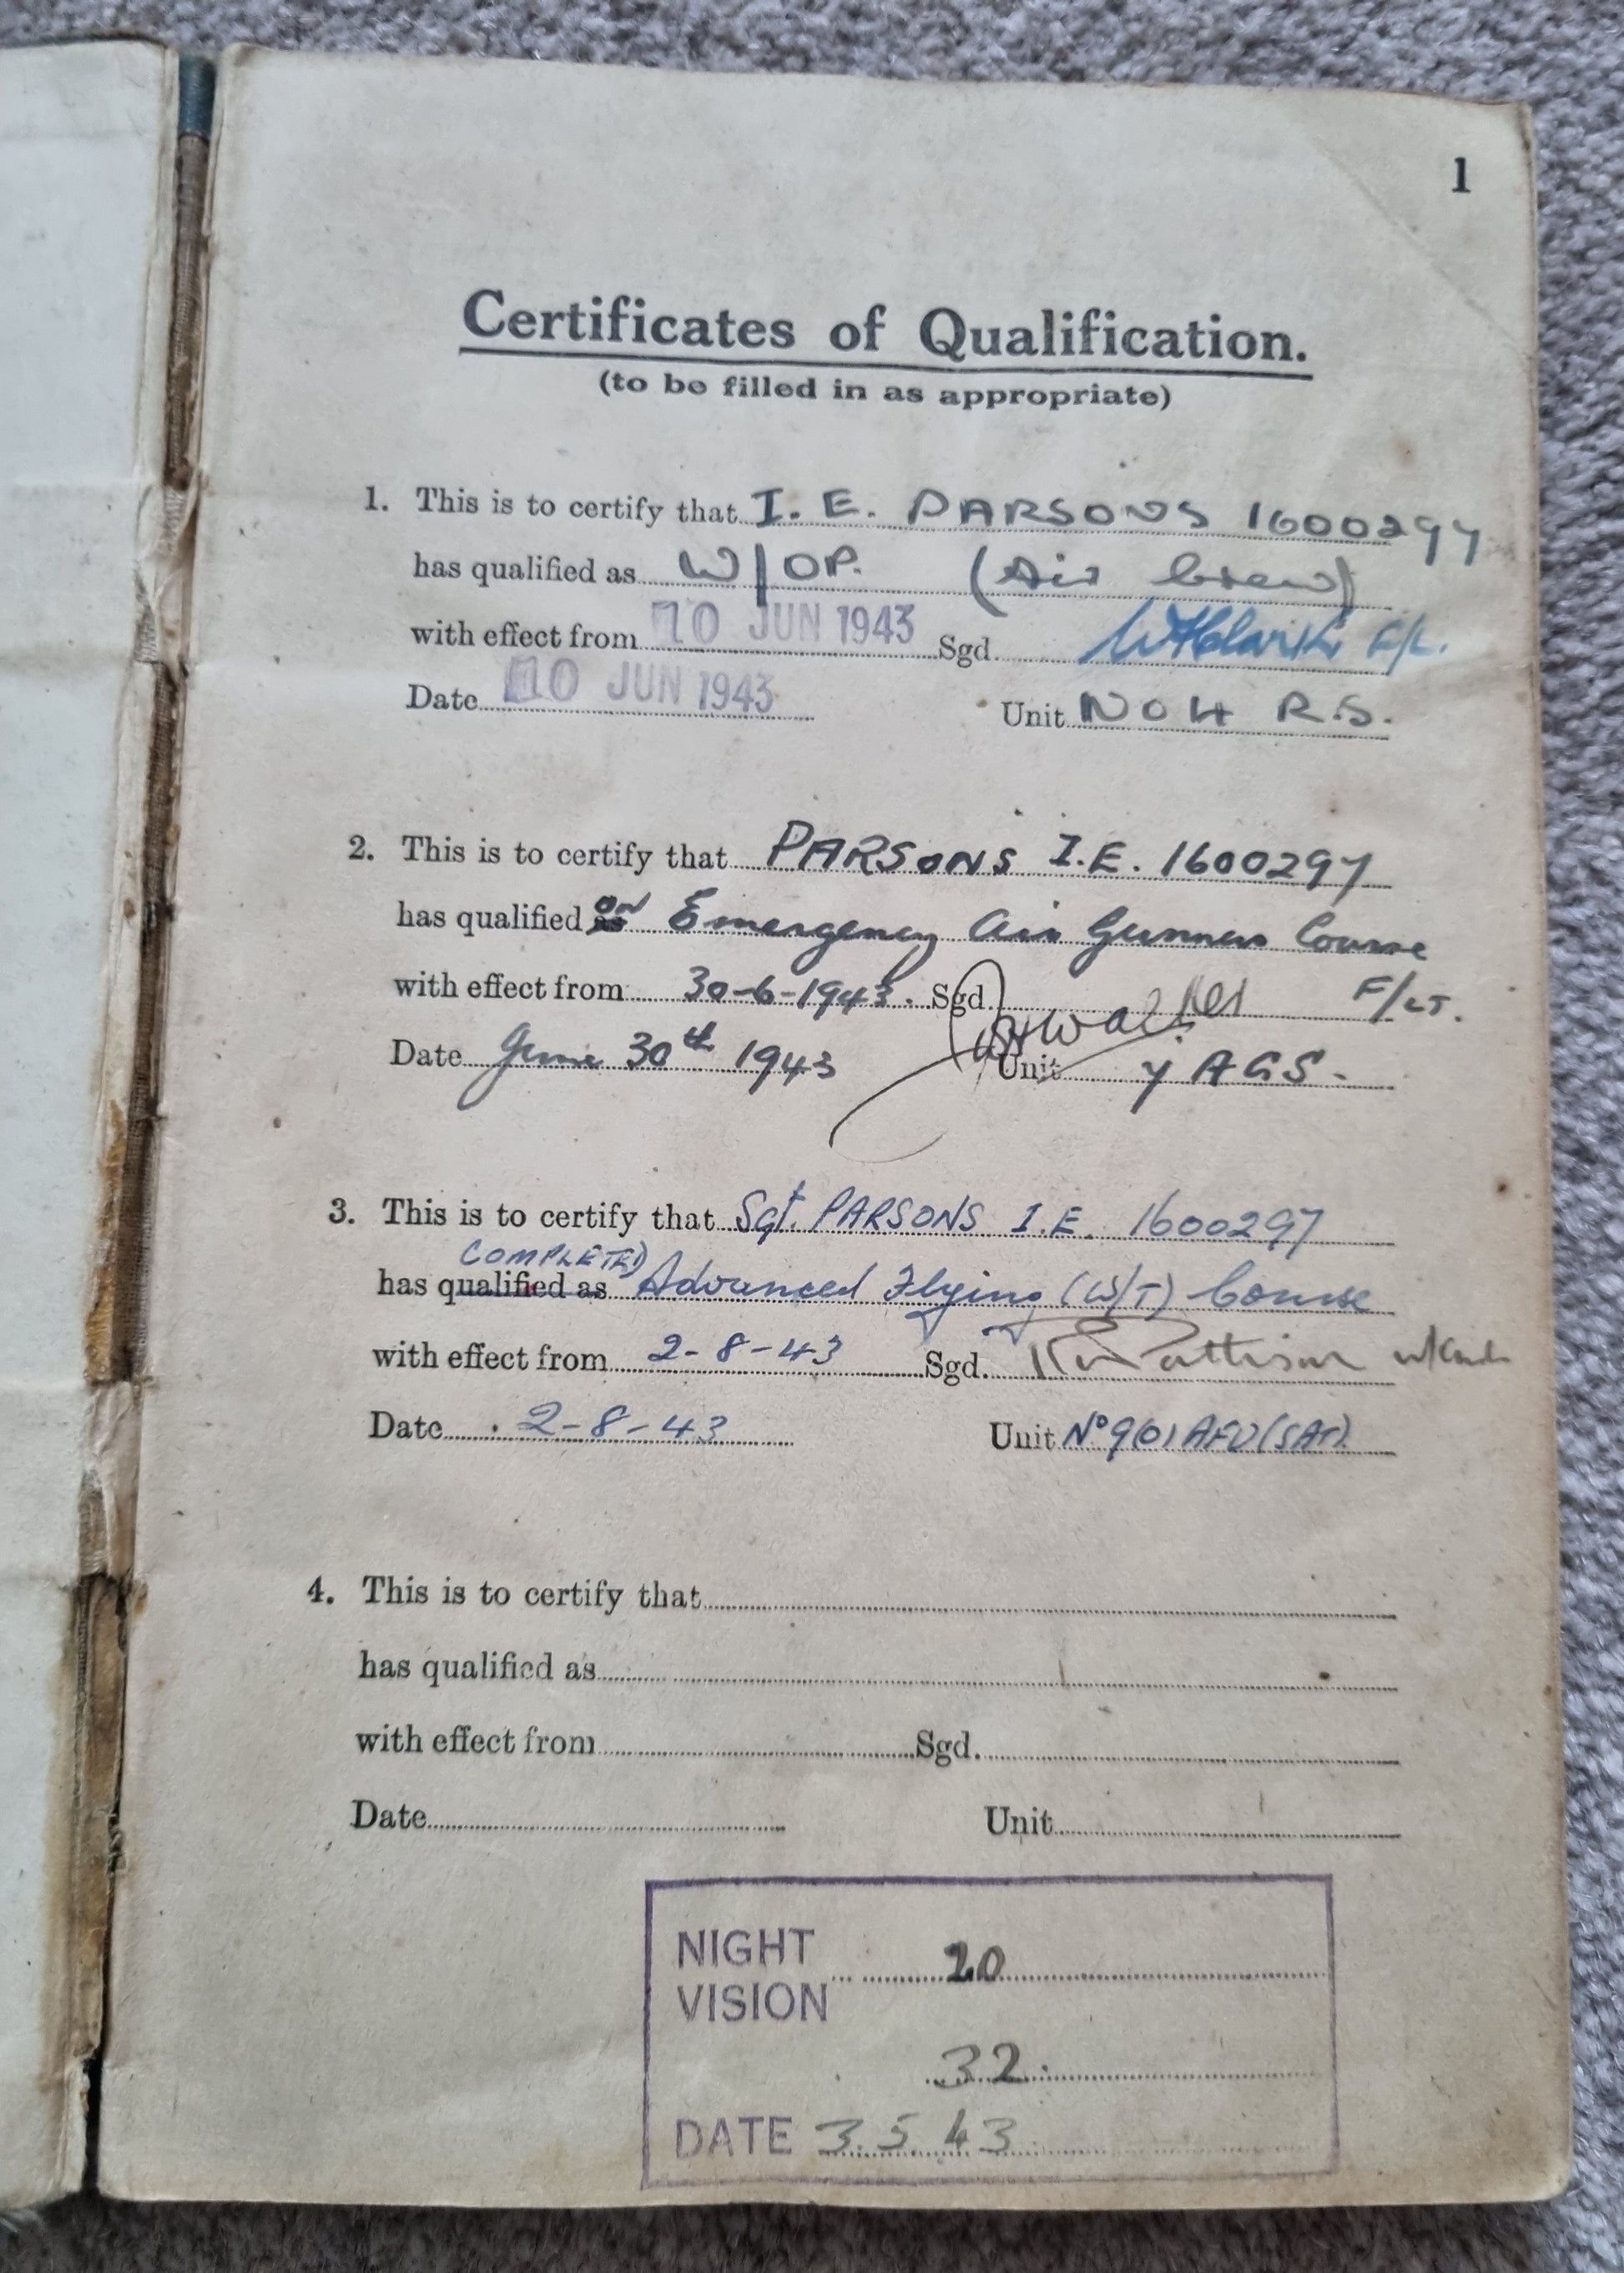 1
Certificates of Qualification.
(to be filled in as appropriate)
1. This is to certify that I. E. PARSONS 1600297
has qualified as W/OP. (Air Crew)
with effect from 10 JUN 1943 Sgd. F/L.
Date 10 JUN 1943 Unit No 4 R.S.
2. This is to certify that PARSONS I.E. 1600297
has qualified as on Emergency Air Gunners Course
with effect from 30-6-1943. Sgd. Walker F/LT.
Date June 30th 1943 Unit 7 AGS.
3. This is to certify that Sgt. PARSONS I.E. 1600297
COMPLETED
has qualified as Advanced Flying (W/T) Course
with effect from 2-8-43 Sgd. Pattison
Date 2-8-43 Unit No 9(O) AFU
4. This is to certify that
has qualified as
with effect from Sgd.
Date Unit
NIGHT 20
VISION
32.
DATE 3.5.43